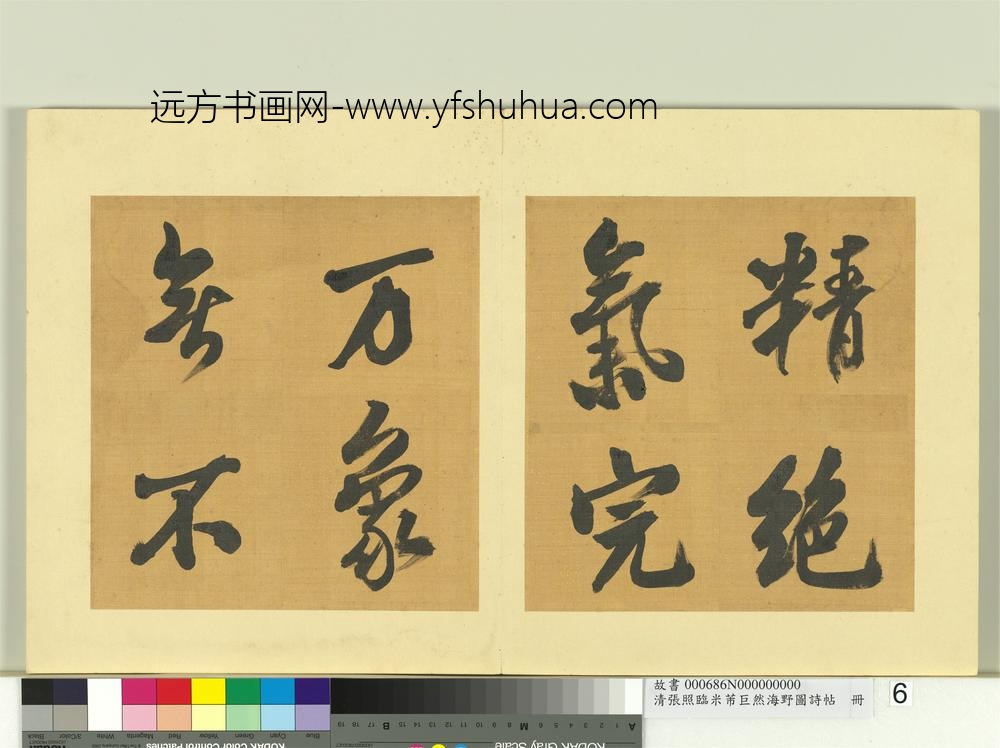 远方书画网-www.yfshuhua.com
精絶
氣完
万象
無不
故書 000686N000000000
清張照臨米芾巨然海野圖詩帖 冊
6
Blue Cyan Green Yellow Red Magenta White 3/Color Black
KODAK Color Control Patches
A 1 2 3 4 5 6 M 8 9 10 11 12 13 14 15 B 17 18 19
KODAK Gray Scale